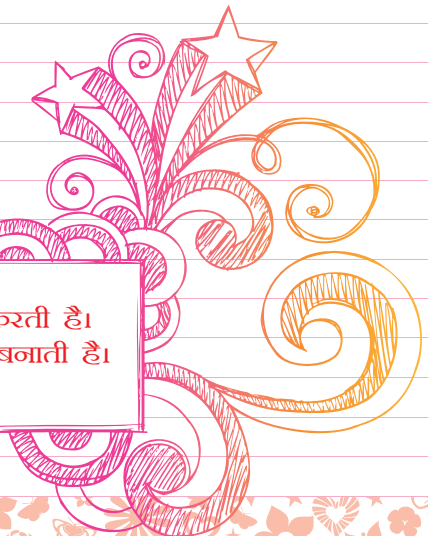 करती है।
बनाती है।